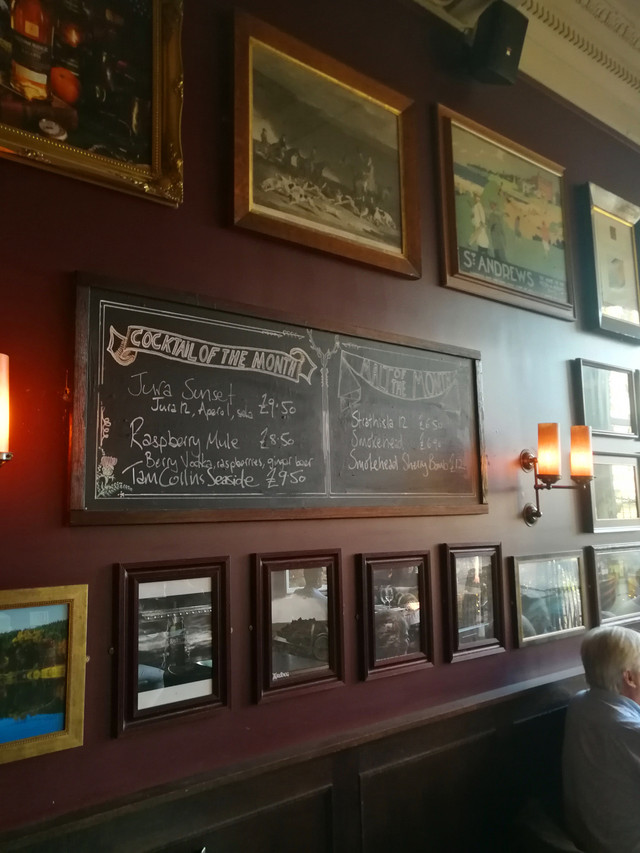 ST ANDREWS
COCKTAIL OF THE MONTH
Jura Sunset £9.50
Jura 12, Aperol, soda
Raspberry Mule £8.50
Berry Vodka, raspberries, ginger beer
Tam Collins Seaside £9.50
MALT OF THE MONTH
Strathisla 12
Smokehead
Smokehead Sherry